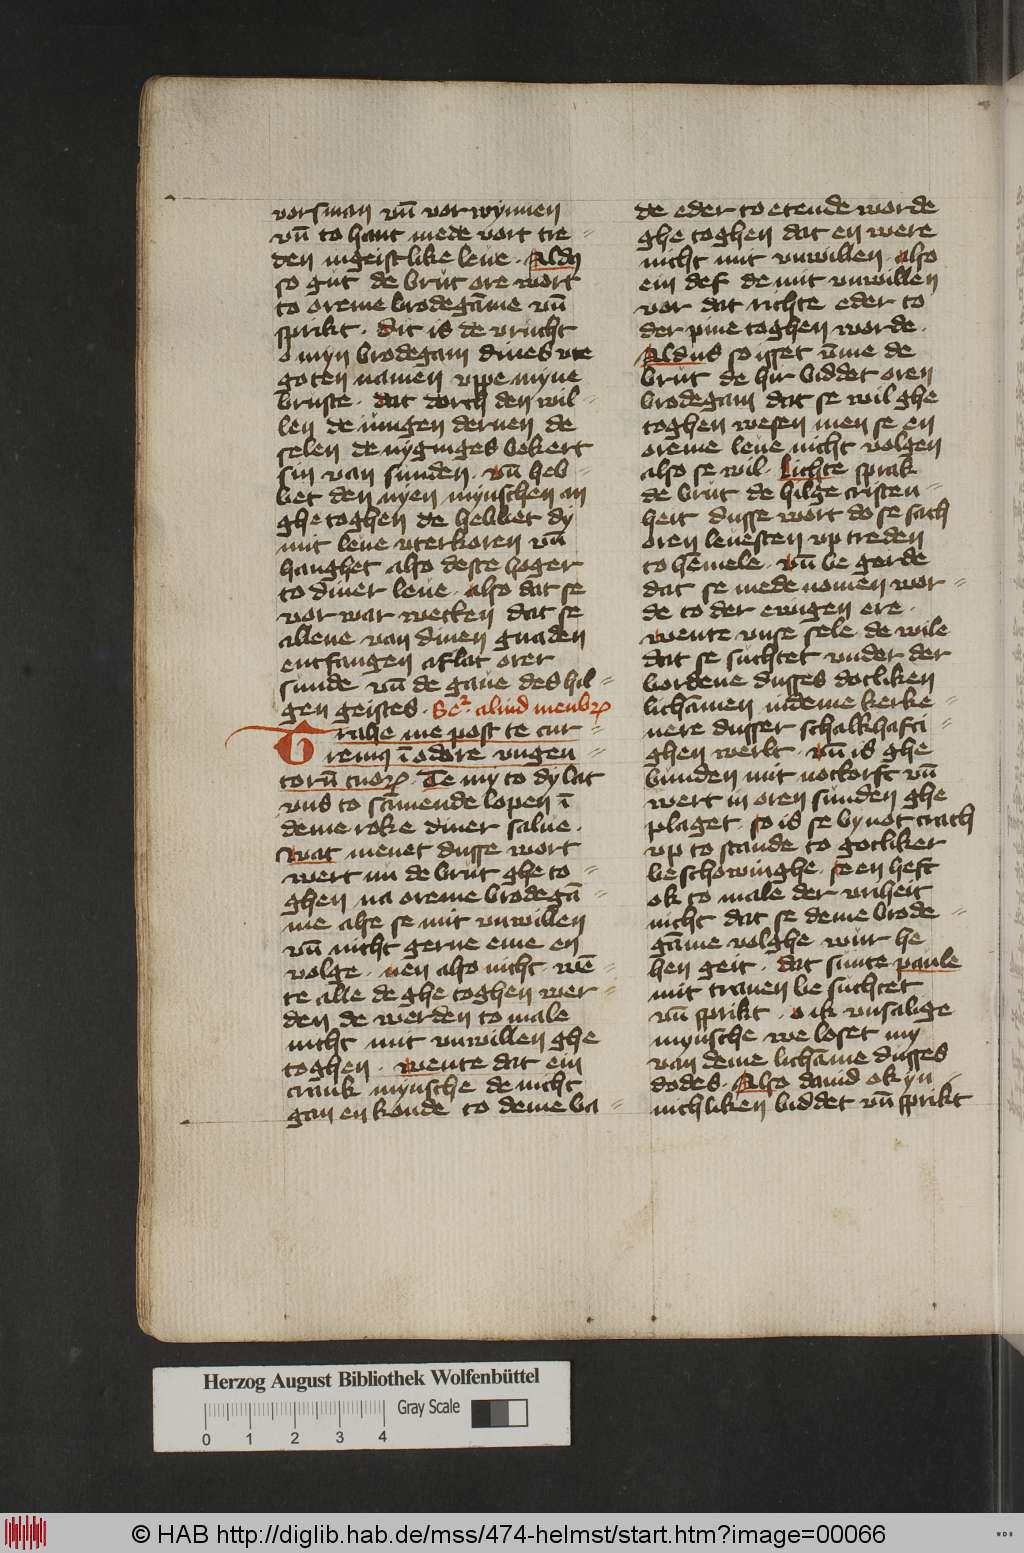 vorsman vn̄ vorwynnen
vn̄ to hant mede vort tre⸗
den ingeistlike leue. Aldꝯ
so gut de brut ore wort
to oreme brodegāme vn̄
sprikt. dit is de vrucht
o myn brodegam dines vte
goten namen vppe myne
bruste. dat dorch den wil⸗
len de iungen dernen de
selen de nyginges bekert
sin van sunden. vn̄ heb⸗
bet den nyen mynschen an
ghetoghen de hebbet dy
mit leue vterkoren vn̄
hanghet also deste hoger
to diner leue. also dat se
vorwar wetken dat se
allene van dinen gnaden
entfangen aflat orer
sunde vn̄ de gaue des hil⸗
gen geistes. Se². aliud menbrꝝ
Trahe me post te cur⸗
remꝯ ī odore vngen⸗
torū tuoꝝ. Te my to dy lat
vns to sāmende lopen ī
deme roke diner salue.
Wat menet dusse wort
wert nu de brut gheto⸗
ghen na oreme brodegā⸗
me alse se mit vnwillen
vn̄ nicht gerne eme en
volge. nen also nicht. wē⸗
te alle de ghetoghen wer⸗
den de werden to male
nicht mit vnwillen ghe
toghen. wente dat ein
crank mynsche de nicht
gan en konde to deme ba⸗
de eder to etende worde
ghetoghen dat en were
nicht mit vnwillen. also
ein def de mit vnwillen
vor dat richte eder to
der pine toghen worde.
Aldus so isset vm̄e de
brut de hir biddet oren
brodegam dat se wil ghe
toghen wesen men se en
oreme leue nicht volgen
also se wil. Lichte sprak
de brut de hilge cristen⸗
heit dusse wort do se sach
oren leuesten vp treden
to hēmele. vn̄ begerde
dat se mede nomen wor⸗
de to der ewigen ere.
wente vnse sele de wile
dat se suchtet vnder der
bordene dusses dotliken
lichāmen indeme kerke⸗
nere dusser schalkhafti⸗
ghen werlt. vn̄ is ghe
bunden mit notkorft vn̄
wert in oren sunden ghe
plaget. so is se by not trach
vp to stande to gotliker
beschowinghe. se en heft
ok to male der vriheit
nicht dat se deme brode⸗
gāme volghe wur he
hen geit. dat sunte paule
mit tranen besuchtet
vn̄ sprikt. o ik vnsalige
mynsche we loset my
van deme lichāme dusses
dodes. Also dauid ok yn⸗
nichliken biddet vn̄ sprikt
Herzog August Bibliothek Wolfenbüttel
Gray Scale
0 1 2 3 4
© HAB http://diglib.hab.de/mss/474-helmst/start.htm?image=00066
WDB